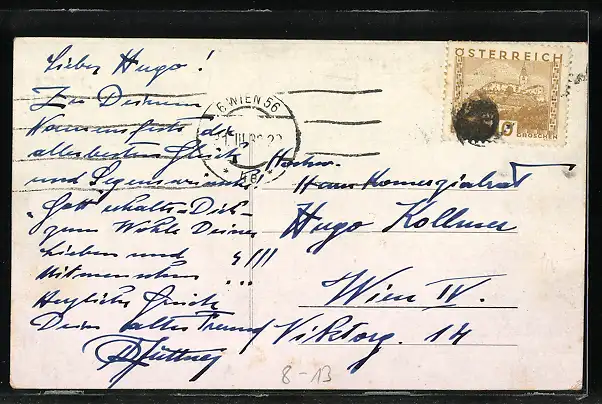 Lieber Hugo!
Zu Deinem
Namensfeste die
allerbesten Glück
und Segenswünsche
"Gott erhalte Dich
zum Wohle Deiner
Lieben und
Mitmenschen
Herzliche Grüße
Dein alter Freund
6 WIEN 56
ÖSTERREICH
GROSCHEN
Hochw.
Herrn Kommerzialrat
Hugo Kollmer
Wien IV.
Viktorg. 14
8-13